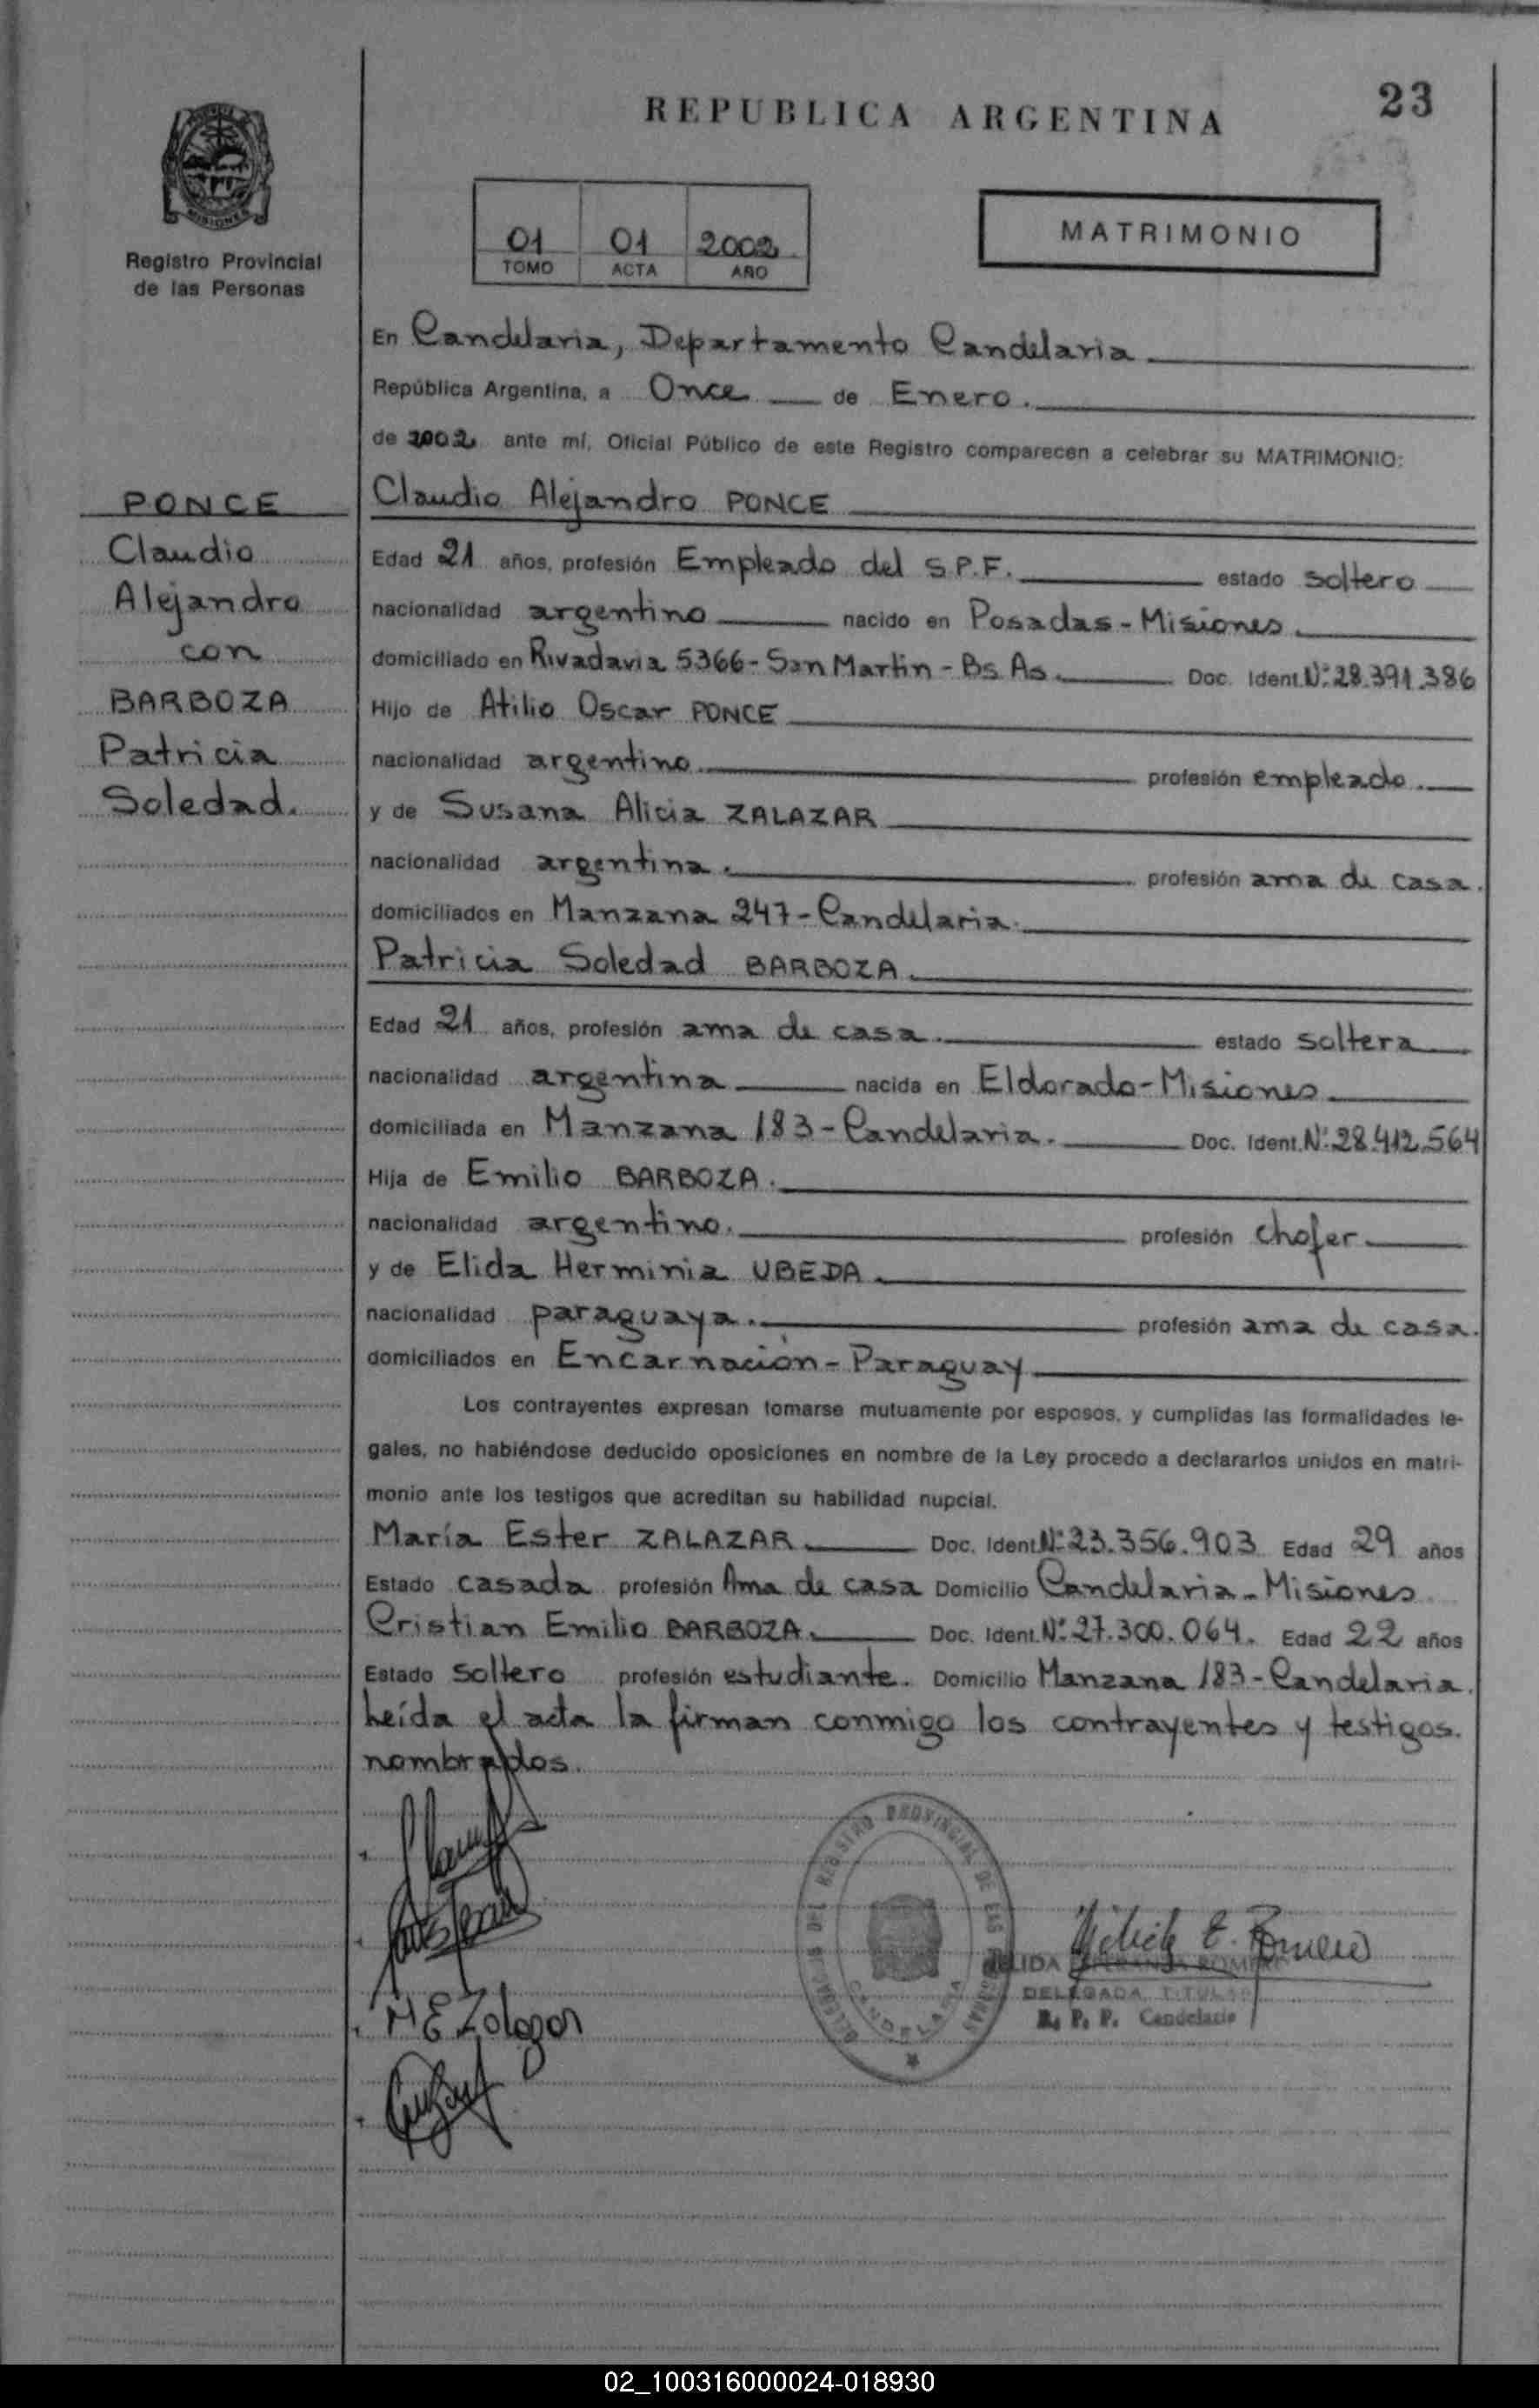 REPUBLICA ARGENTINA
23
MISIONES
Registro Provincial
de las Personas
01 01 2002
TOMO ACTA AÑO
MATRIMONIO
En Candelaria, Departamento Candelaria
República Argentina, a Once de Enero.
de 2002 ante mí, Oficial Público de este Registro comparecen a celebrar su MATRIMONIO:
PONCE
Claudio
Alejandro
con
BARBOZA
Patricia
Soledad.
Claudio Alejandro PONCE
Edad 21 años, profesión Empleado del S.P.F. estado soltero
nacionalidad argentino nacido en Posadas-Misiones.
domiciliado en Rivadavia 5366-San Martin-Bs As. Doc. Ident. Nº 28.391.386
Hijo de Atilio Oscar PONCE
nacionalidad argentino. profesión empleado.
y de Susana Alicia ZALAZAR
nacionalidad argentina. profesión ama de casa.
domiciliados en Manzana 247-Candelaria.
Patricia Soledad BARBOZA.
Edad 21 años, profesión ama de casa. estado soltera
nacionalidad argentina nacida en Eldorado-Misiones
domiciliada en Manzana 183-Candelaria. Doc. Ident. Nº 28.412.564
Hija de Emilio BARBOZA.
nacionalidad argentino. profesión chofer
y de Elida Herminia UBEDA.
nacionalidad paraguaya. profesión ama de casa.
domiciliados en Encarnación-Paraguay
Los contrayentes expresan tomarse mutuamente por esposos, y cumplidas las formalidades le-
gales, no habiéndose deducido oposiciones en nombre de la Ley procedo a declararlos unidos en matri-
monio ante los testigos que acreditan su habilidad nupcial.
María Ester ZALAZAR. Doc. Ident. Nº 23.356.903 Edad 29 años
Estado casada profesión Ama de casa Domicilio Candelaria-Misiones
Cristian Emilio BARBOZA. Doc. Ident. Nº 27.300.064. Edad 22 años
Estado soltero profesión estudiante. Domicilio Manzana 183-Candelaria.
Leída el acta la firman conmigo los contrayentes y testigos.
nombrados.
M E Zalazar
REGISTRO PROVINCIAL DE LAS
CANDELARIA
E. Romero
ROMERO
DELEGADA TITULAR
R. P. P. Candelaria
02_100316000024-018930